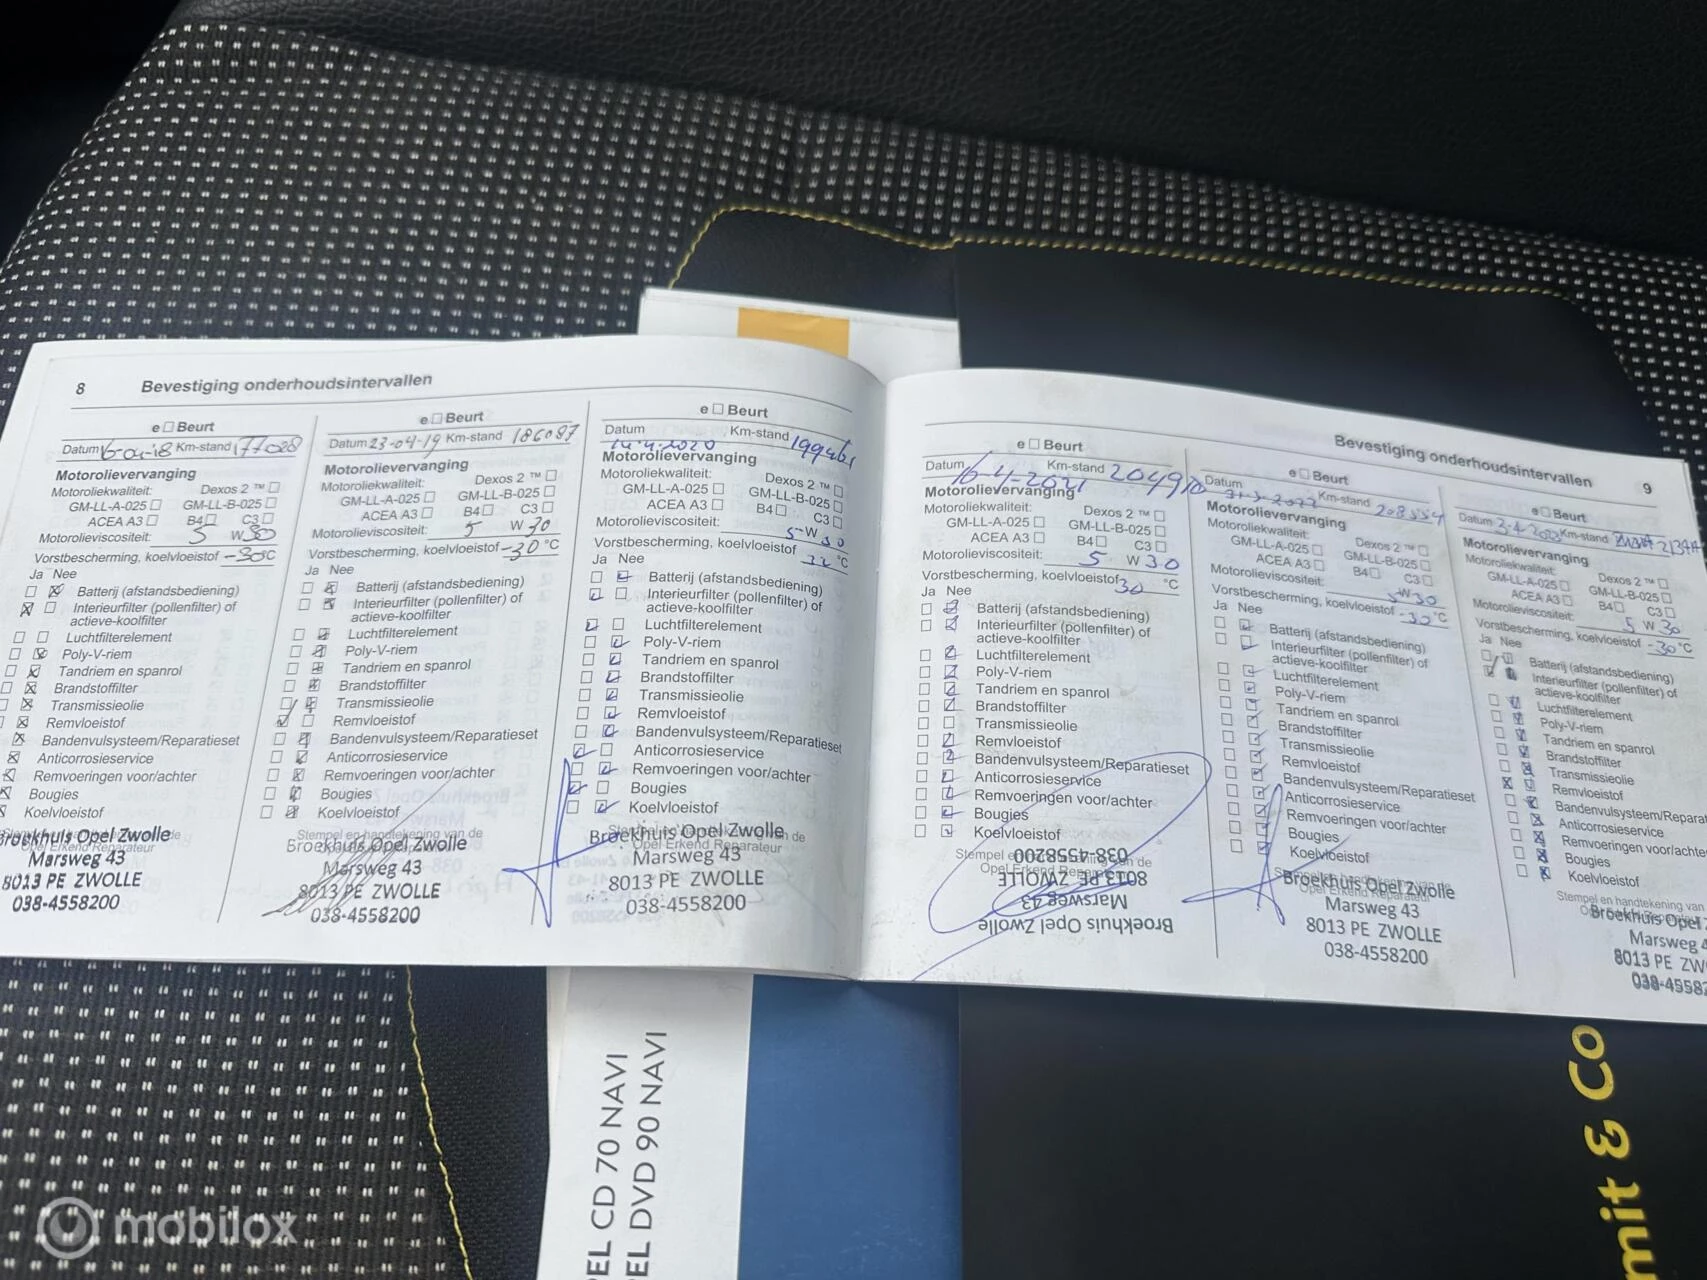 8 Bevestiging onderhoudsintervallen
e □ Beurt
Datum 16-04-18 Km-stand 177028
Motorolievervanging
Motoroliekwaliteit: Dexos 2 ™ □
GM-LL-A-025 □ GM-LL-B-025 □
ACEA A3 □ B4 □ C3 □
Motorolieviscositeit: 5 W 30
Vorstbescherming, koelvloeistof -30 °C
Ja Nee
Batterij (afstandsbediening)
Interieurfilter (pollenfilter) of
actieve-koolfilter
Luchtfilterelement
Poly-V-riem
Tandriem en spanrol
Brandstoffilter
Transmissieolie
Remvloeistof
Bandenvulsysteem/Reparatieset
Anticorrosieservice
Remvoeringen voor/achter
Bougies
Koelvloeistof
Broekhuis Opel Zwolle
Marsweg 43
8013 PE ZWOLLE
038-4558200
e □ Beurt
Datum 23-04-19 Km-stand 186087
Motorolievervanging
Motoroliekwaliteit: Dexos 2 ™ □
GM-LL-A-025 □ GM-LL-B-025 □
ACEA A3 □ B4 □ C3 □
Motorolieviscositeit: 5 W 30
Vorstbescherming, koelvloeistof -30 °C
Ja Nee
Batterij (afstandsbediening)
Interieurfilter (pollenfilter) of
actieve-koolfilter
Luchtfilterelement
Poly-V-riem
Tandriem en spanrol
Brandstoffilter
Transmissieolie
Remvloeistof
Bandenvulsysteem/Reparatieset
Anticorrosieservice
Remvoeringen voor/achter
Bougies
Koelvloeistof
Stempel en handtekening van de
Broekhuis Opel Zwolle
Marsweg 43
8013 PE ZWOLLE
038-4558200
e □ Beurt
Datum 14-4-2020 Km-stand
Motorolievervanging
Motoroliekwaliteit: Dexos 2 ™ □
GM-LL-A-025 □ GM-LL-B-025 □
ACEA A3 □ B4 □ C3 □
Motorolieviscositeit: 5-W 30
Vorstbescherming, koelvloeistof 32 °C
Ja Nee
Batterij (afstandsbediening)
Interieurfilter (pollenfilter) of
actieve-koolfilter
Luchtfilterelement
Poly-V-riem
Tandriem en spanrol
Brandstoffilter
Transmissieolie
Remvloeistof
Bandenvulsysteem/Reparatieset
Anticorrosieservice
Remvoeringen voor/achter
Bougies
Koelvloeistof
Stempel en handtekening van de
Opel Erkend Reparateur
Broekhuis Opel Zwolle
Marsweg 43
8013 PE ZWOLLE
038-4558200
Bevestiging onderhoudsintervallen 9
e □ Beurt
Datum 16-4-2021 Km-stand
Motorolievervanging
Dexos 2 ™ □
GM-LL-A-025 □ GM-LL-B-025 □
ACEA A3 □ B4 □ C3 □
Motorolieviscositeit: 5 W 30
Vorstbescherming, koelvloeistof 30 °C
Ja Nee
Batterij (afstandsbediening)
Interieurfilter (pollenfilter) of
actieve-koolfilter
Luchtfilterelement
Poly-V-riem
Tandriem en spanrol
Brandstoffilter
Transmissieolie
Remvloeistof
Bandenvulsysteem/Reparatieset
Anticorrosieservice
Remvoeringen voor/achter
Bougies
Koelvloeistof
Broekhuis Opel Zwolle
Marsweg 43
8013 PE ZWOLLE
038-4558200
e □ Beurt
Datum Km-stand 208554
Motorolievervanging
Motoroliekwaliteit: Dexos 2 ™ □
GM-LL-A-025 □ GM-LL-B-025 □
ACEA A3 □ B4 □ C3 □
Motorolieviscositeit: 5W30
Vorstbescherming, koelvloeistof °C
Ja Nee
Batterij (afstandsbediening)
Interieurfilter (pollenfilter) of
actieve-koolfilter
Luchtfilterelement
Poly-V-riem
Tandriem en spanrol
Brandstoffilter
Transmissieolie
Remvloeistof
Bandenvulsysteem/Reparatieset
Anticorrosieservice
Remvoeringen voor/achter
Bougies
Koelvloeistof
Broekhuis Opel Zwolle
Marsweg 43
8013 PE ZWOLLE
038-4558200
e □ Beurt
Datum Km-stand
Motorolievervanging
Motoroliekwaliteit: Dexos 2 ™ □
GM-LL-A-025 □ GM-LL-B-025 □
ACEA A3 □ B4 □ C3 □
Motorolieviscositeit: 5 W 30
Vorstbescherming, koelvloeistof -30 °C
Ja Nee
Batterij (afstandsbediening)
Interieurfilter (pollenfilter) of
actieve-koolfilter
Luchtfilterelement
Poly-V-riem
Tandriem en spanrol
Brandstoffilter
Transmissieolie
Remvloeistof
Bandenvulsysteem/Reparat
Anticorrosieservice
Remvoeringen voor/achte
Bougies
Koelvloeistof
Stempel en handtekening van
Broekhuis Opel
Marsweg 4
8013 PE ZW
038-4558
PEL CD 70 NAVI
EL DVD 90 NAVI
mit & Co
mobilox